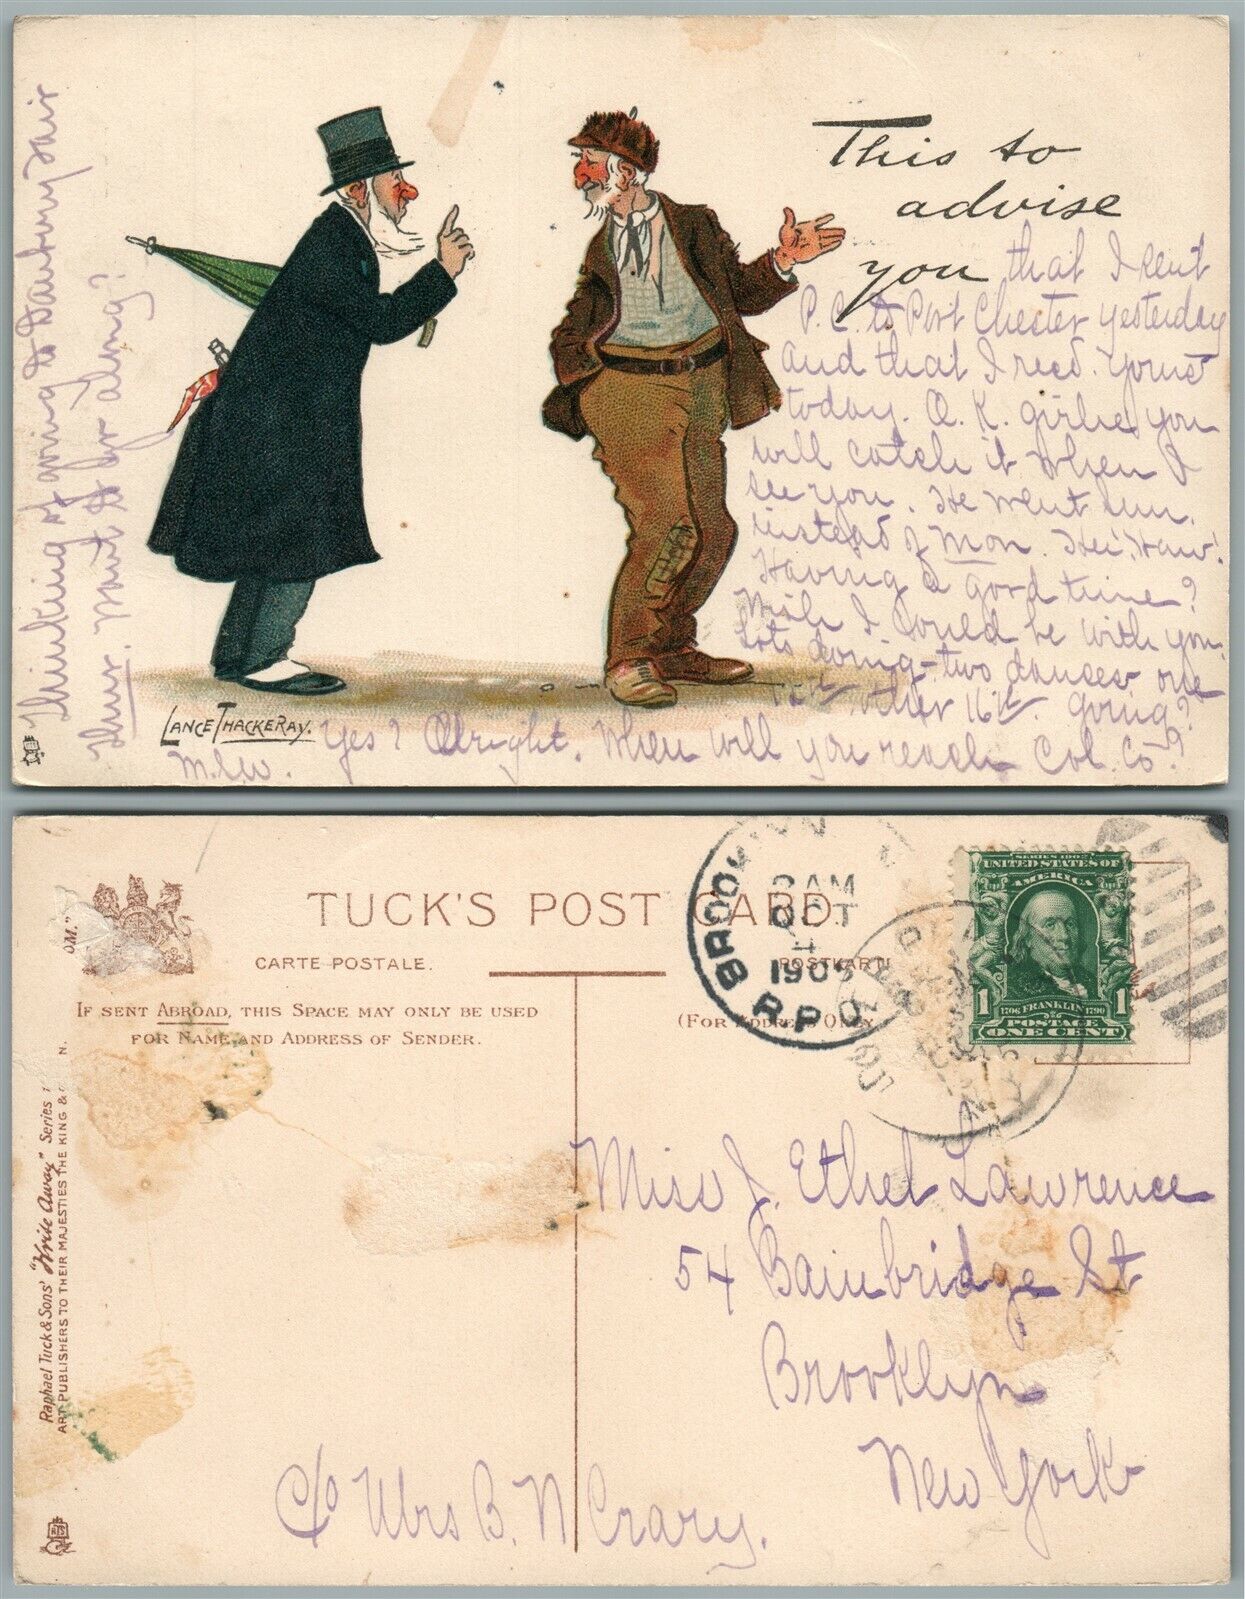 This to
advise
you that I sent
P. C. to Port Chester yesterday
and that I recd. yours
today. O. K. girlie you
will catch it when I
see you. He went Sun.
instead of Mon. Hee! Haw!
Having a good time?
Wish I could be with you.
Lots doing - two dances one
15th other 16th. Going?
Yes? Alright. When will you reach Col. Co?
M.S.W.
Thinking of going to Danbury Fair
Thur. Want to go along?
LANCE THACKERAY.
TUCK'S POST CARD.
CARTE POSTALE.
POSTKARTE
IF SENT ABROAD, THIS SPACE MAY ONLY BE USED
FOR NAME AND ADDRESS OF SENDER.
(FOR ADDRESS ONLY
OM."
Raphael Tuck & Sons' "Write Away" Series
ART PUBLISHERS TO THEIR MAJESTIES THE KING &
BROOKLYN
AM
OCT
4
190
R.P.O.
SERIES 1902
UNITED STATES OF
AMERICA
1 1
1706 FRANKLIN 1790
POSTAGE
ONE CENT
Miss J. Ethel Lawrence
54 Bainbridge St
Brooklyn
New York
C/o Mrs B. N Crary.